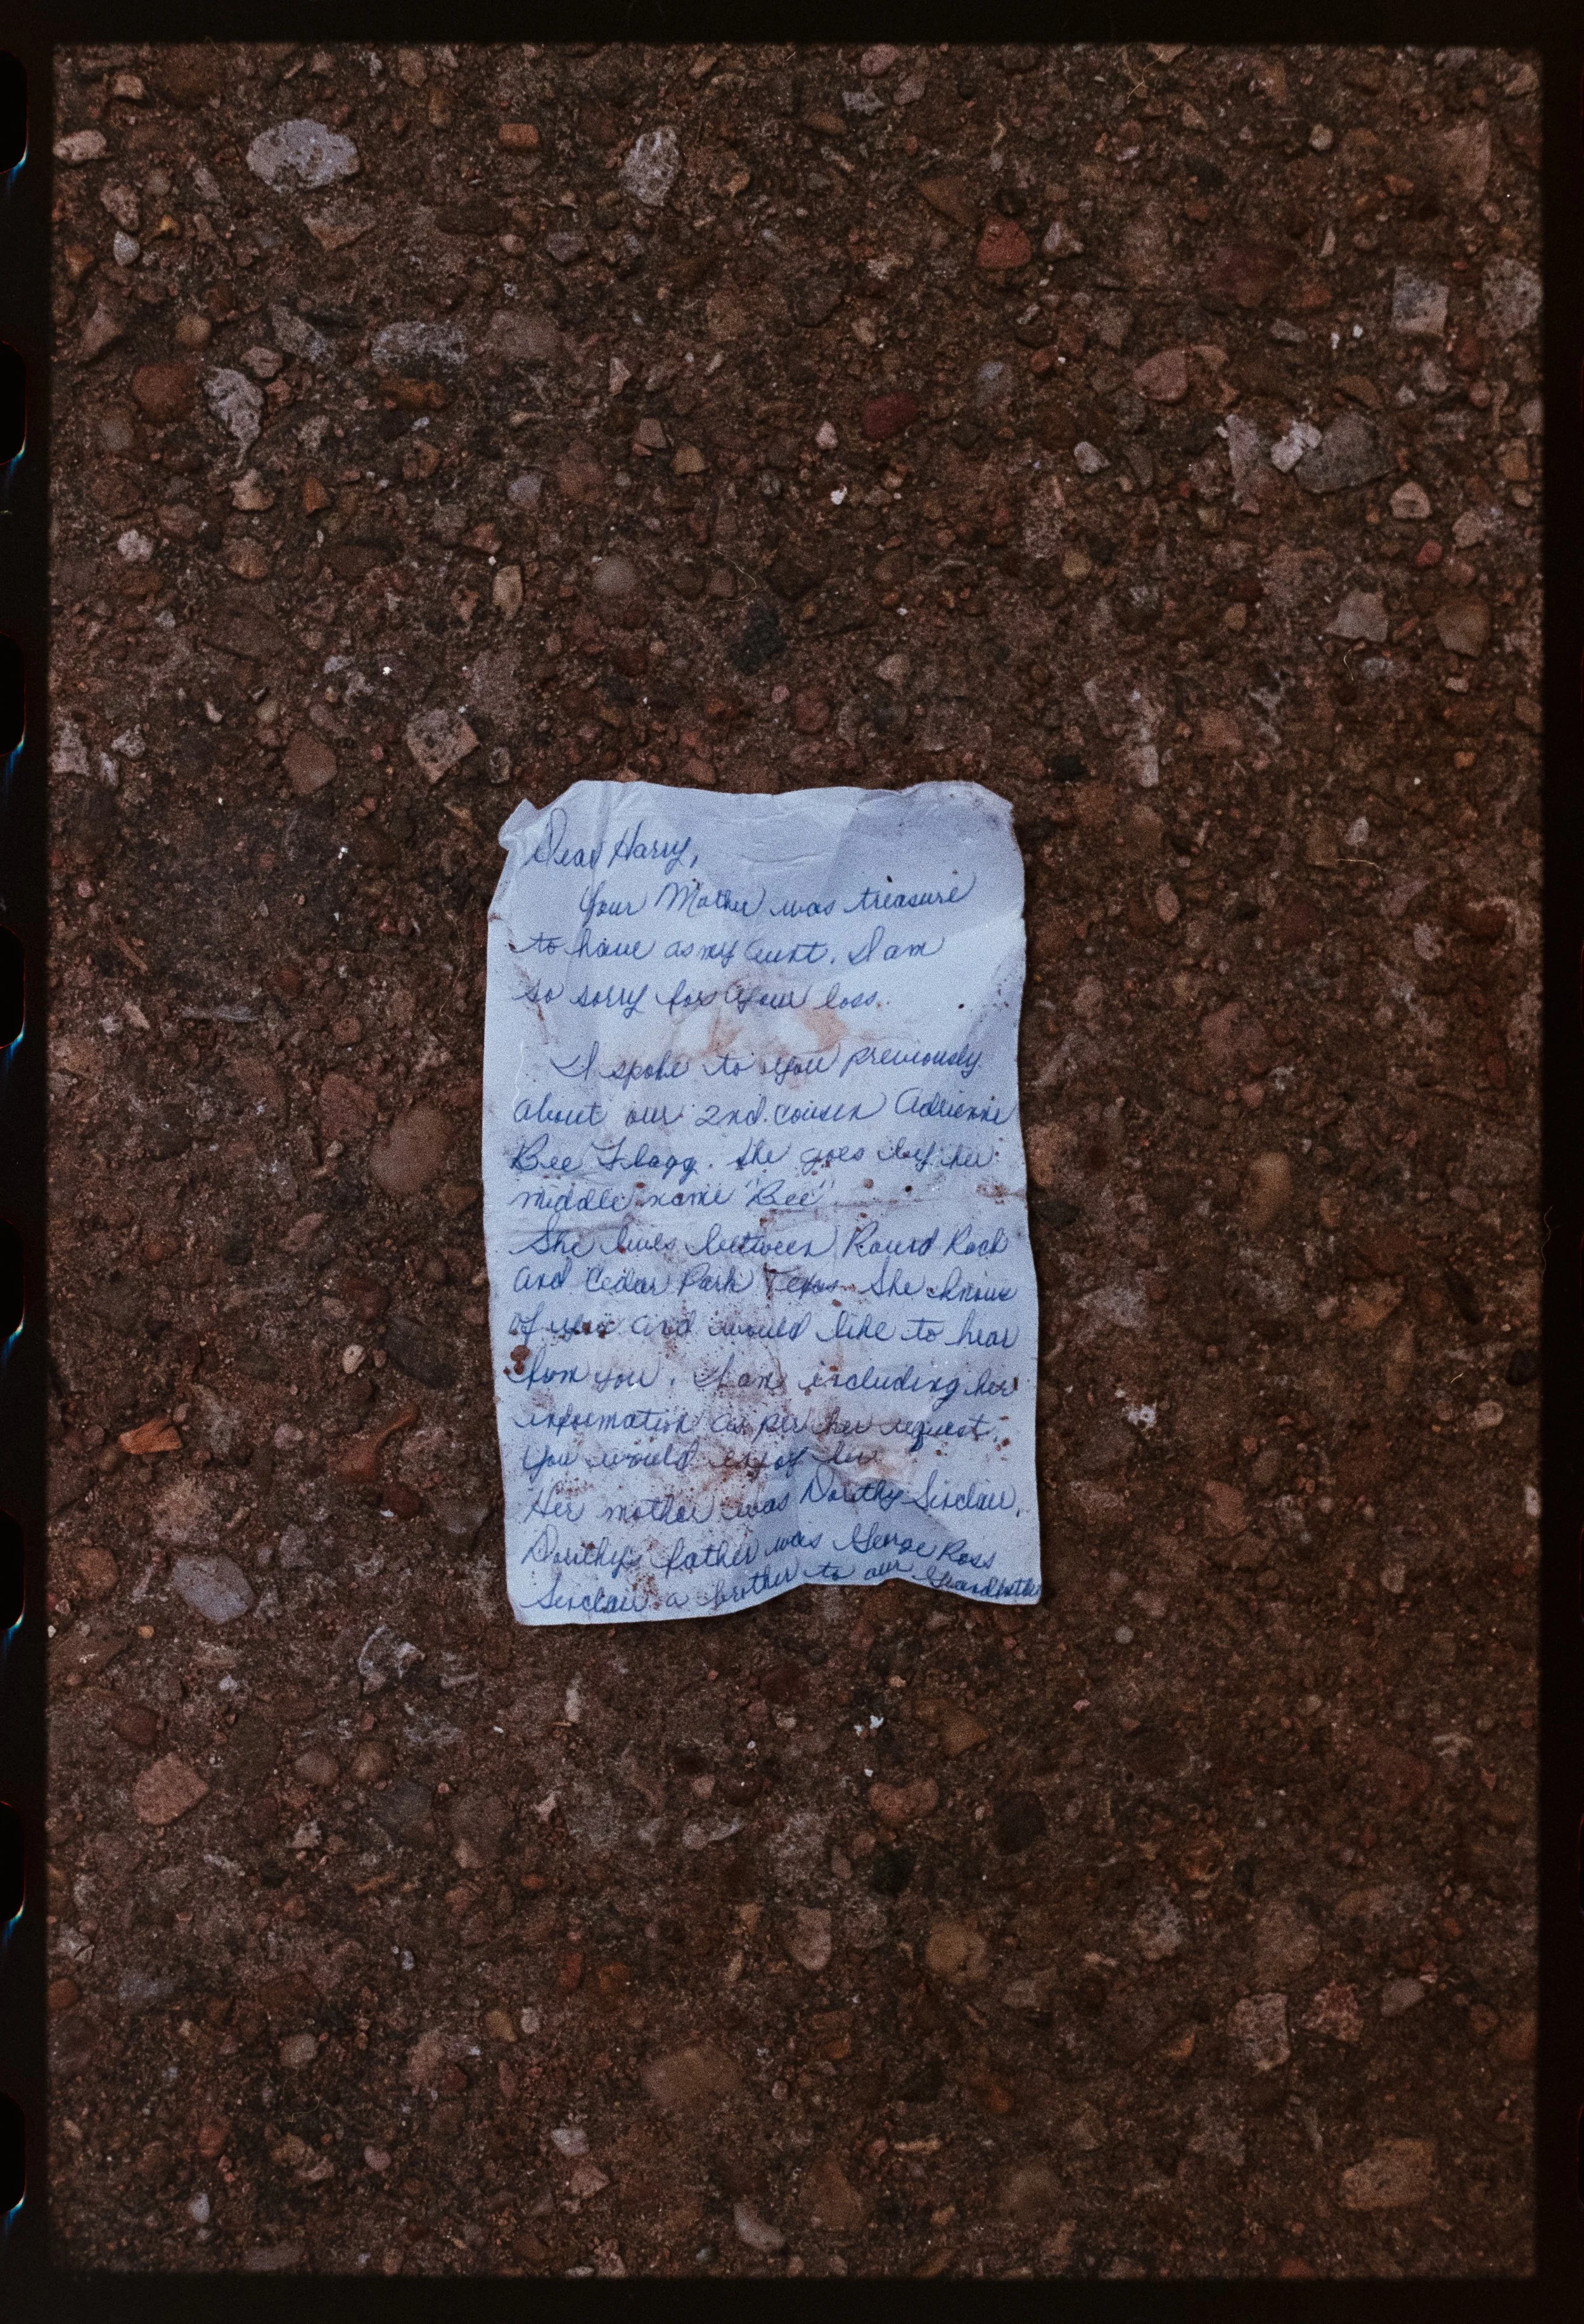 Dear Harry,
Your Mother was treasure
to have as my aunt. I am
so sorry for your loss.
I spoke to you previously
about our 2nd. cousin Adrienne
Bee Flagg. She goes by her
middle name "Bee"
She lives between Round Rock
and Cedar Park Texas. She knows
of you and would like to hear
from you. I am including her
information as per her request.
You would enjoy her
Her mother was Dorothy Sinclair.
Dorothy's father was George Ross
Sinclair a brother to our Grandfather